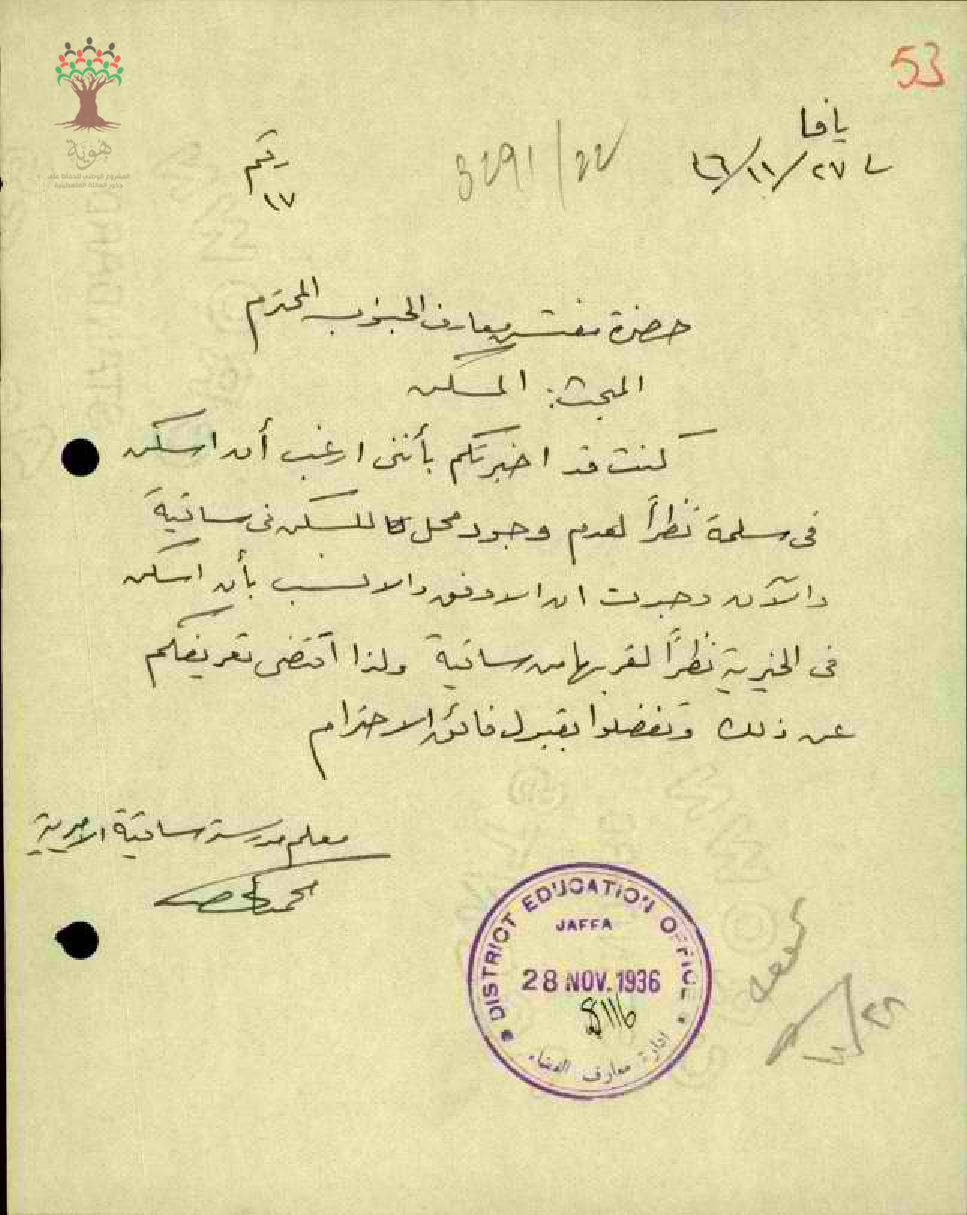 53
يافا
في ٢٧/١١/٣٦
3291/22
رقم
١٧
هوية
حضرة مفتش معارف الجنوب المحترم
المبحث: المسكن
كنت قد اخبرتكم بأنني ارغب أن اسكن
في سلمة نظراً لعدم وجود محل للسكن في ساقية
والآن وجدت ان الاوفق والانسب بأن اسكن
في الخيرية نظراً لقربها من ساقية ولذا اقتضى تعريفكم
عن ذلك وتفضلوا بقبول فائق الاحترام
معلم مدرسة ساقية الاميرية
DISTRICT EDUCATION OFFICE
JAFFA
28 NOV. 1936
8116
ادارة معارف القضاء